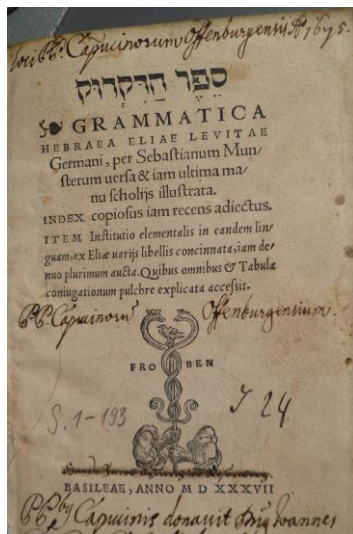 loci PP. Capucinorum Offenburgensis Aº 1695.
ספר הדקדוק
GRAMMATICA
HEBRAEA ELIAE LEVITAE
Germani, per Sebastianum Mun/
sterum uersa & iam ultima ma/
nu scholijs illustrata.
INDEX copiosus iam recens adiectus.
ITEM Institutio elementalis in eandem lin/
guam, ex Eliæ uarijs libellis concinnata, iam de/
nuo plurimum aucta. Quibus omnibus & Tabula
coniugationum pulchre explicata accessit.
PP. Capucinorū Offenburgensium.
FRO BEN
S. 1-193 J 24
BASILEAE, ANNO M D XXXVII
PP by Capucinis donauit Ioannes